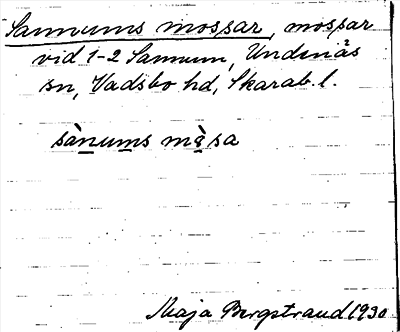 Sannums mossar, mossar
vid 1-2 Sannum, Undenäs
sn, Vadsbo hd, Skarab. l.
sànums mə̀sa
Maja Bergstrand 1930